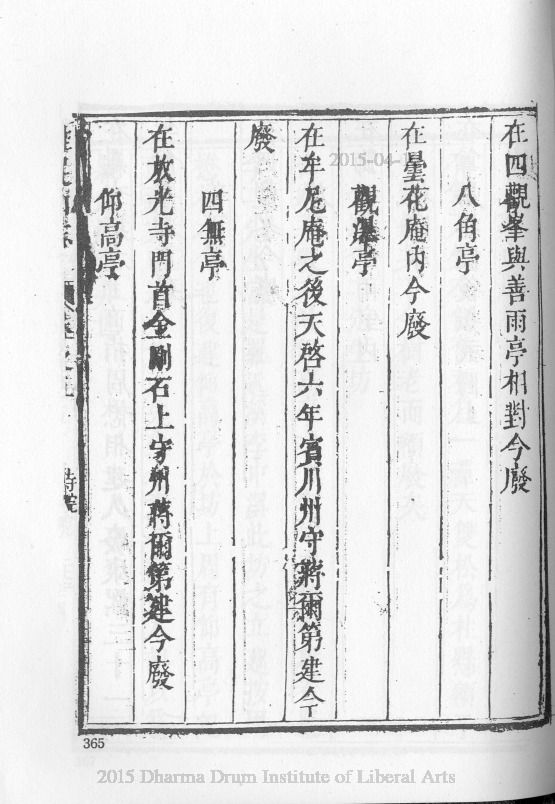 在四觀峯與善雨亭相對今廢
八角亭
在曇花庵內今廢
觀瀑亭
在牟尼庵之後天啓六年賓川州守蔣爾第建今
廢
四無亭
在放光寺門首金剛石上守州蔣爾第建今廢
仰高亭
寺院
365
2015-04-1
2015 Dharma Drum Institute of Liberal Arts